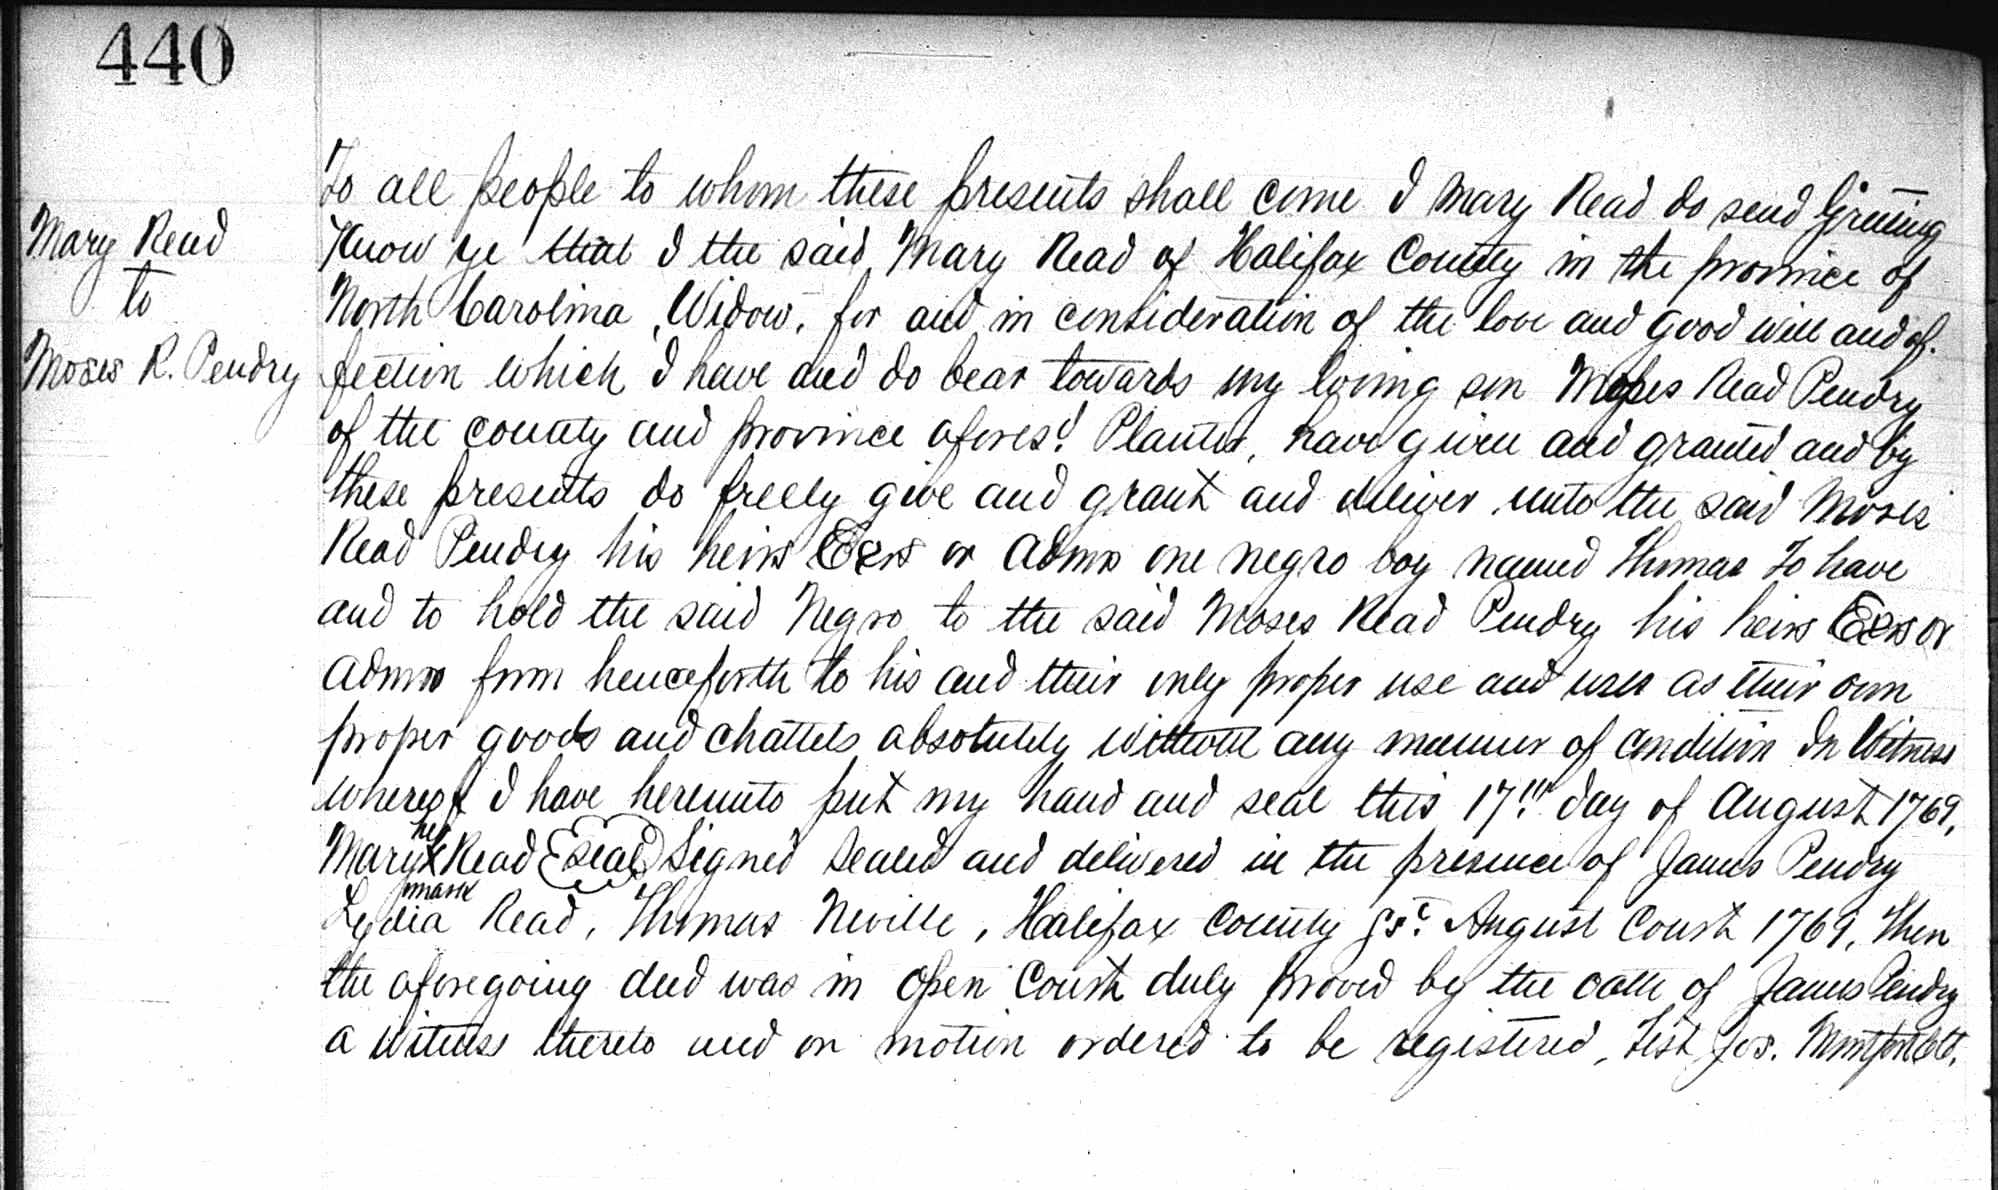 440
Mary Read
to
Moses R. Pendry
To all people to whom these presents shall come I Mary Read do send Greeting
Know ye that I the said Mary Read of Halifax County in the province of
North Carolina, Widow, for and in consideration of the love and good will and af-
fection which I have and do bear towards my loving son Moses Read Pendry
of the county and province afores.d Planter, have given and granted and by
these presents do freely give and grant and deliver unto the said Moses
Read Pendry his heirs Exrs or Admrs one negro boy named Thomas To have
and to hold the said Negro to the said Moses Read Pendry his heirs Exrs or
Admrs from henceforth to his and their only proper use and uses as their own
proper goods and chattels absolutely without any manner of condition In Witness
whereof I have hereunto put my hand and seal this 17th day of August 1769.
her
Mary X Read (seal) Signed Sealed and delivered in the presence of James Pendry
mark
Lydia Read, Thomas Neville, Halifax County Ss.t August Court 1769, Then
the aforegoing deed was in Open Court duly proved by the oath of James Pendry
a Witness thereto and on motion ordered to be registered, Test Jos. Montfort